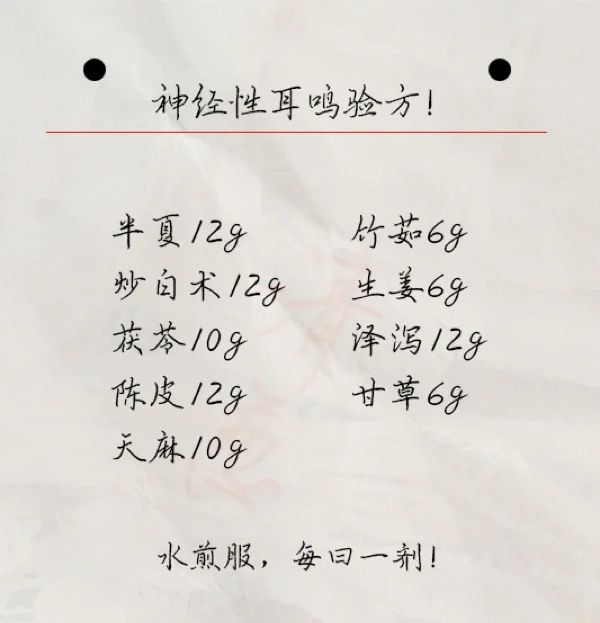 神经性耳鸣验方!
半夏12g 竹茹6g
炒白术12g 生姜6g
茯苓10g 泽泻12g
陈皮12g 甘草6g
天麻10g
水煎服，每日一剂!